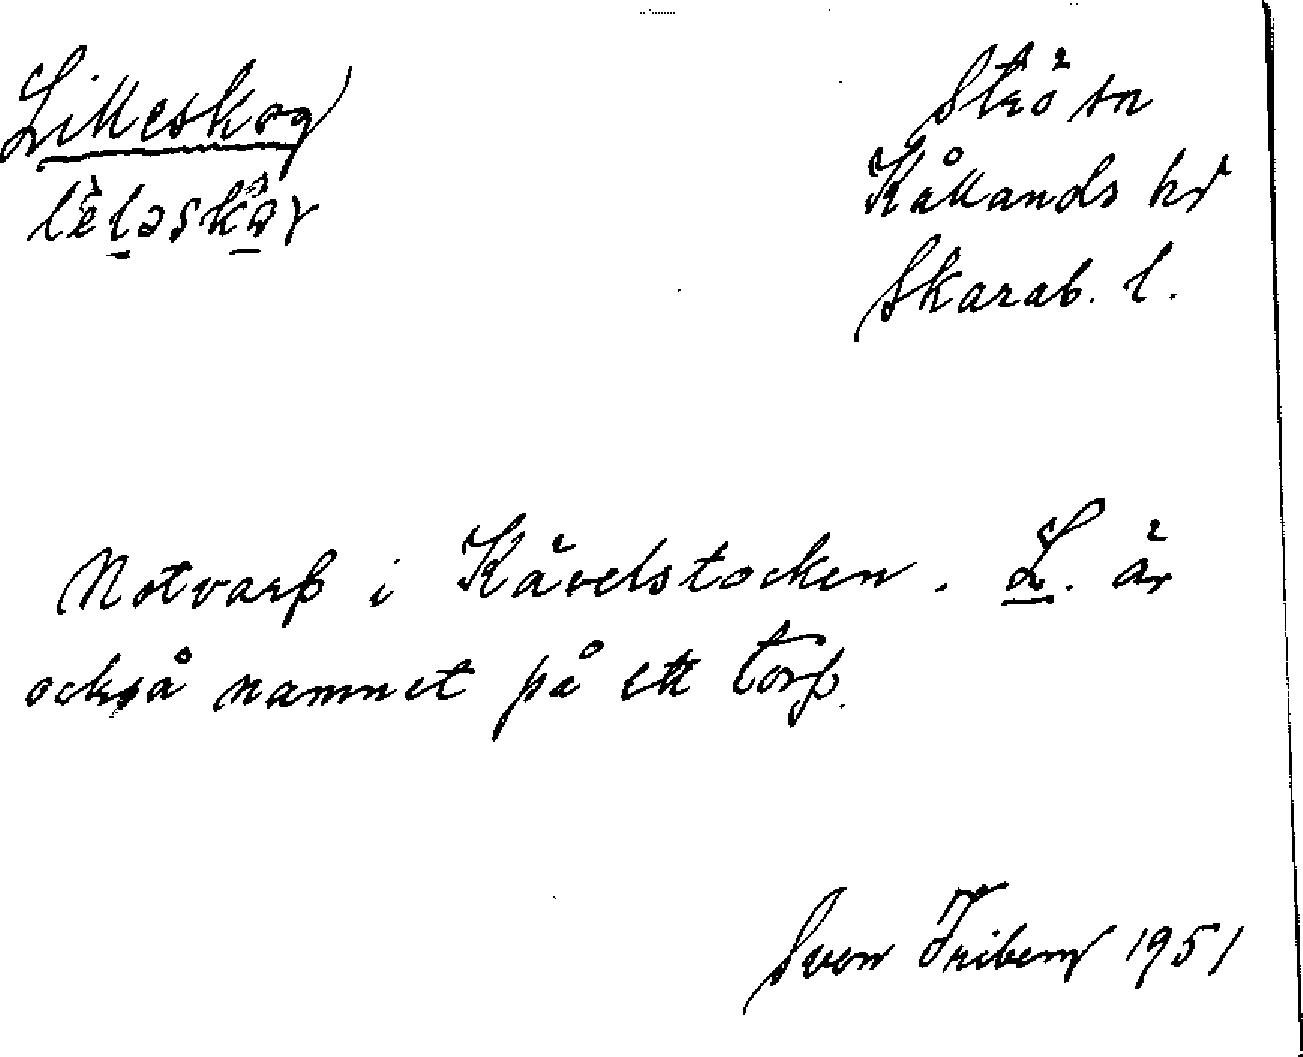 Lilleskog
Strö sn
Kållands hd
Skarab. l.
Notvarp i Kävelstocken. L. är
också namnet på ett torp.
Sven Friberg 1951